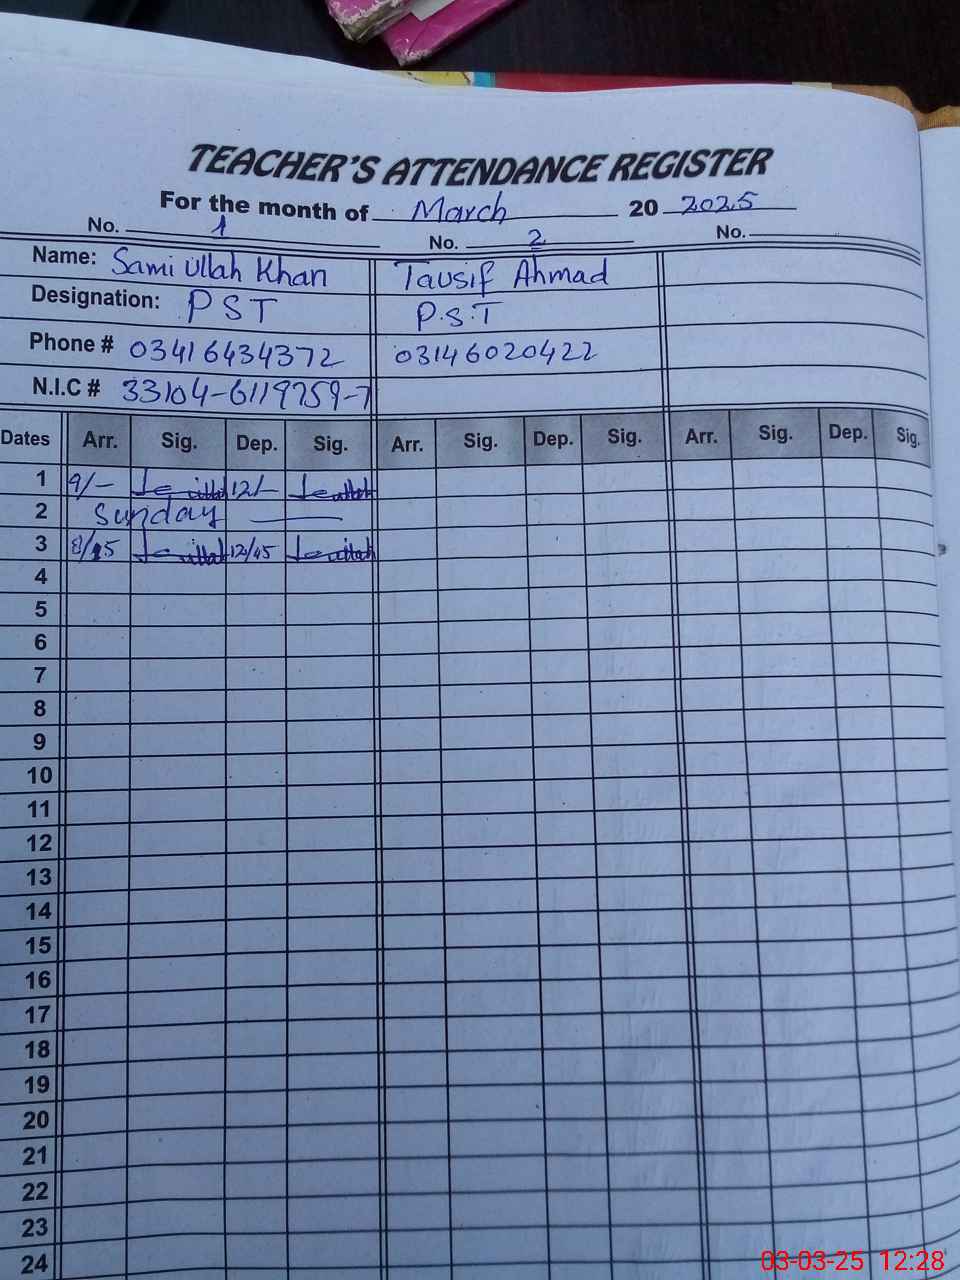 TEACHER'S ATTENDANCE REGISTER
For the month of March 20 2025
No. 1 No. 2 No.
Name: Sami Ullah Khan Tausif Ahmad
Designation: PST P.S.T
Phone # 03416434372 03146020422
N.I.C # 33104-6119759-7
Dates Arr. Sig. Dep. Sig. Arr. Sig. Dep. Sig. Arr. Sig. Dep. Sig.
1 9/- 12/-
2 Sunday
3 8/25 12/45
4
5
6
7
8
9
10
11
12
13
14
15
16
17
18
19
20
21
22
23
24
03-03-25 12:28